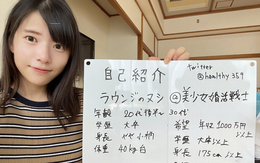 twitter
@healthy359
自己紹介
ラウンジのヌシ ②美少女婚活戦士
年齢 20代後半 30代
学歴 大卒 希望 年収1000万円以上
身長 やや小柄 学歴 大卒以上
体重 40kg台 身長 175cm以上